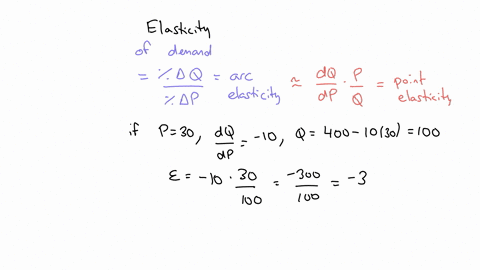 Elasticity
of demand
= %ΔQ / %ΔP = arc elasticity ≈ dQ/dP · P/Q = point elasticity
if P=30, dQ/dP = -10, Q = 400-10(30) = 100
ε = -10 · 30/100 = -300/100 = -3